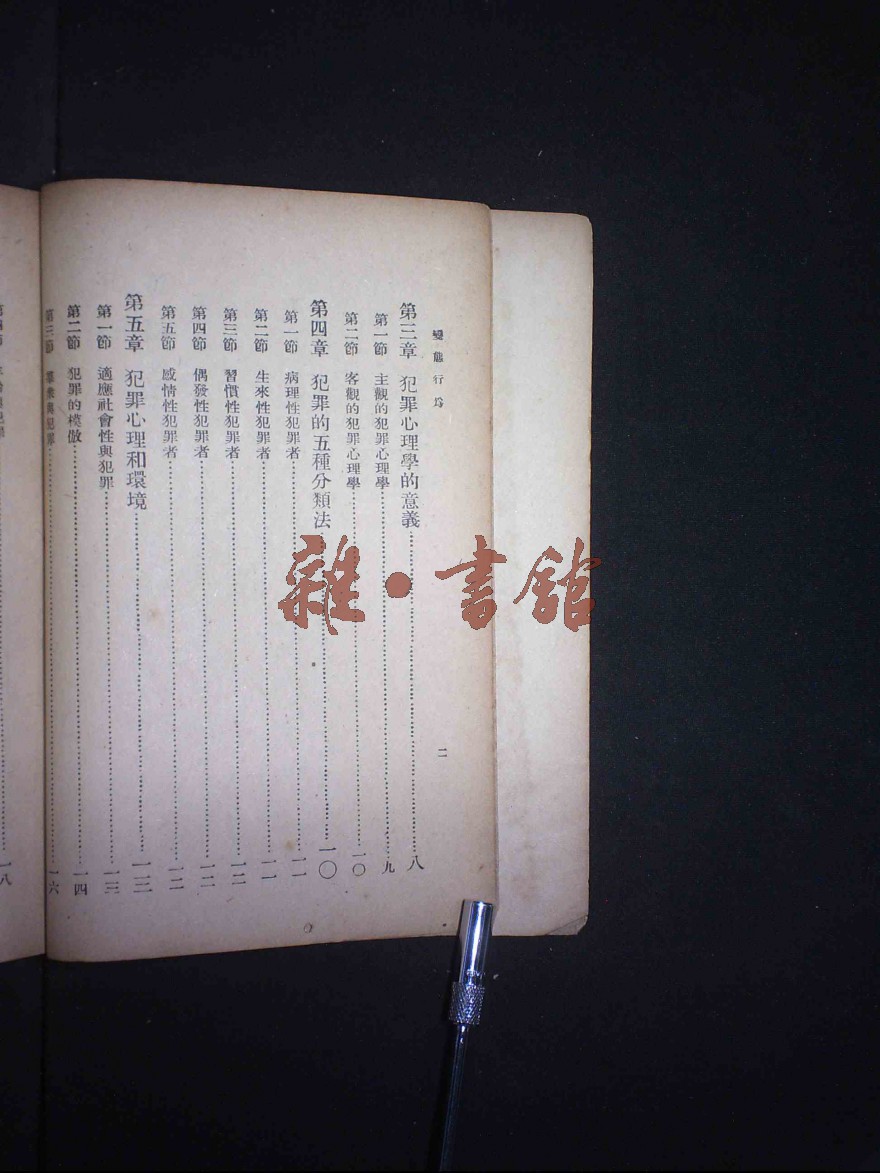 變態行為
二
第三章　犯罪心理學的意義……八
第一節　主觀的犯罪心理學……九
第二節　客觀的犯罪心理學……一〇
第四章　犯罪的五種分類法……一〇
第一節　病理性犯罪者……一一
第二節　生來性犯罪者……一一
第三節　習慣性犯罪者……一二
第四節　偶發性犯罪者……一二
第五節　感情性犯罪者……一二
第五章　犯罪心理和環境……一三
第一節　適應社會性與犯罪……一三
第二節　犯罪的模倣……一四
第三節　羣衆與犯罪……一六
一八
雜・書館